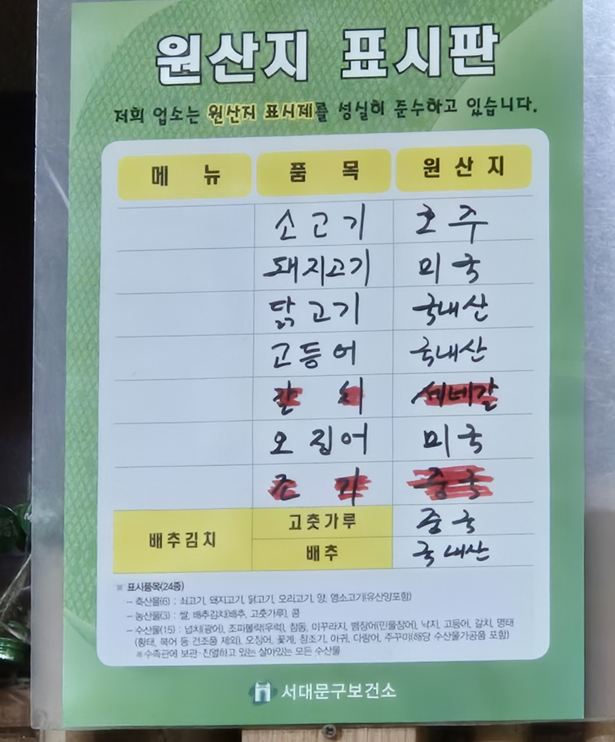 원산지 표시판
저희 업소는 원산지 표시제를 성실히 준수하고 있습니다.
메 뉴 품 목 원 산 지
소고기 호주
돼지고기 미국
닭고기 국내산
고등어 국내산
갈 치 세네갈
오징어 미국
조 기 중국
배추김치 고춧가루 중국
배추 국내산
※ 표시품목(24종)
- 축산물(6) : 쇠고기, 돼지고기, 닭고기, 오리고기, 양, 염소고기(유산양포함)
- 농산물(3) : 쌀, 배추김치(배추, 고춧가루), 콩
- 수산물(15) : 넙치(광어), 조피볼락(우럭), 참돔, 미꾸라지, 뱀장어(민물장어), 낙지, 고등어, 갈치, 명태
(황태, 북어 등 건조품 제외), 오징어, 꽃게, 참조기, 아귀, 다랑어, 주꾸미(해당 수산물가공품 포함)
※수족관에 보관·진열하고 있는 살아있는 모든 수산물
서대문구보건소